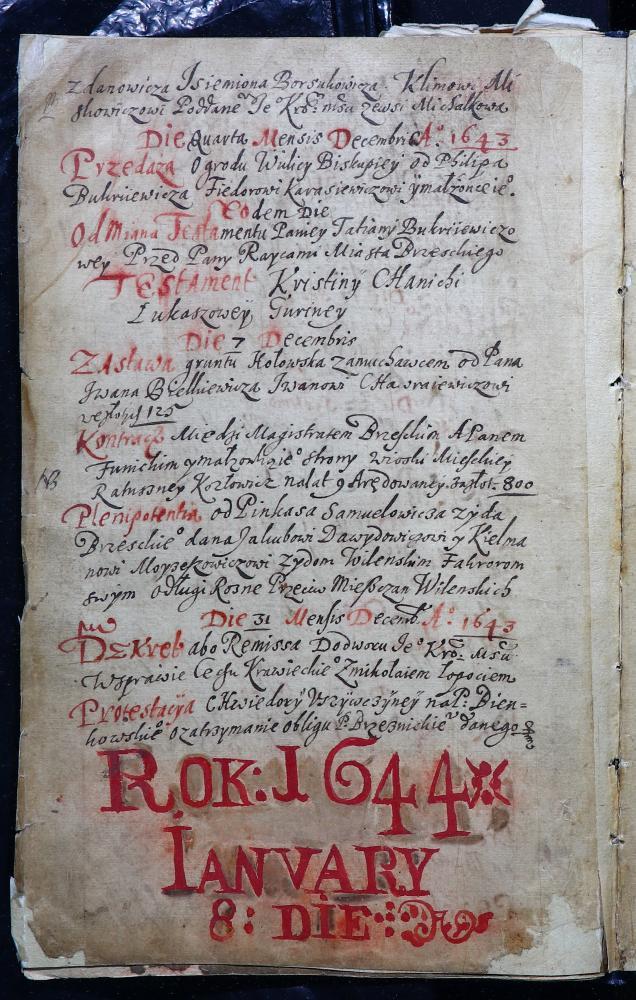 Zdanowicza Isiemiona Borsukowicza. Klimowi Mi
skowiczowi Poddane° Je° Kro: msći zewsi Michalkowa
Die Quarta Mensis Decembris A°. 1643
Przedaza Ogrodu Wulicy Biskupiey od Philipa
Bukriiewicza Fiedorowi Karasiewiczowi ymałżonceie°.
Eodem Die
Odmiana Testamentu Paniey Tatiany Bukriiewiczo
wey Przed Pany Raycami Miasta Brzeskiego
Testament Kristiny CHanichi
Łukaszowey Guriney
Die 7 Decembris
Zastawa gruntu Hołowska zamuchawcem od Pana
Jwana Jwanowi CHawraiewiczowi
125
Kontrackt Miedzi Magistratem Brzeskim APanem
Fumickim ymałzonkąie° strony wioski Mieskiey
NB
Ratuszney Kozłowicz nalat 9 Arędowaney. zazłot. 800
Plenipotentia od Pinkasa Samuelowicza żyda
Brzeskie° dana Jakubowi Dawydowiczowi y Kielma
nowi Moyzeszowiczowi żydom Wilenskim Faktorom
swym odługi Rozne Przeciw Mieszczan Wilenskich
Die 31 Mensis Decemb. A°. 1643
Dekret abo Remissa Dodworu Je° Kro: Msći
Wsprawie Cechu Krawieckie° Zmikołaiem Łopociem
Protestacya CHwiedory naP: Bien=
kowskie° ozatrzymanie obligu P. Brzeznickie° danego
ROK: 1644
IANVARY
8: DIE: